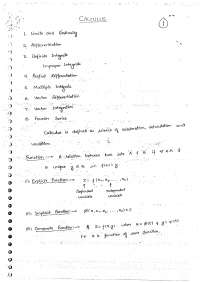 CALCULUS
1
1. Limits and Continuity
2. Differentiation
3. Definite Integrals
Improper Integrals
4. Partial Differentiation
5. Multiple Integrals
6. Vector Differentiation
7. Vector Integration
8. Fourier Series
Calculus is defined as science of calculation and
variation.
Function :- A relation between two sets A & B if ∀ x ∈ A ∃
a unique y ∈ B
(i) Explicit Function :-
Dependent variable Independent variable
(ii) Implicit Function :-
(iii) Composite Function :- If z = f(x,y) where
z is a function of